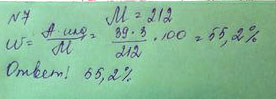 №7 M = 212
W = A·инд / M = 39·3 / 212 · 100 = 55,2%
Ответ! 55,2%